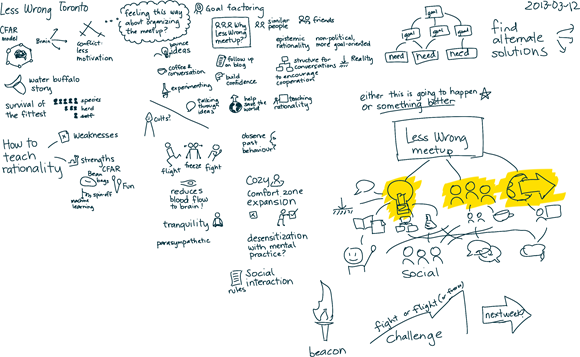 Less Wrong Toronto
2013-03-12
CFAR
model
Brain
conflict:
less
motivation
feeling this way
about organizing
the meetup?
Goal factoring
RRR Why
Less Wrong
meetup?
similar
people
friends
epistemic
rationality
non-political,
more goal-oriented
bounce
ideas
coffee &
conversation
follow up
on blog
build
confidence
structure for
conversations
to encourage
cooperation
Reality
experimenting
talking
through
ideas
help
save the
world
teaching
rationality
water buffalo
story
survival of
the fittest
species
herd
self
How to
teach
rationality
Weaknesses
Strengths
CFAR
Bean
bags
Fun
spinoff
machine
learning
cults?
flight
freeze
fight
reduces
blood flow
to brain!
tranquility
parasympathetic
observe
past
behaviour
Cozy
comfort zone
expansion
desensitization
with mental
practice?
Social
interaction
rules
goal
goal
goal
goal
need
need
need
find
alternate
solutions
either this is going to happen
or something better
Less Wrong
meetup
social
beacon
fight or flight (or freeze)
challenge
next week